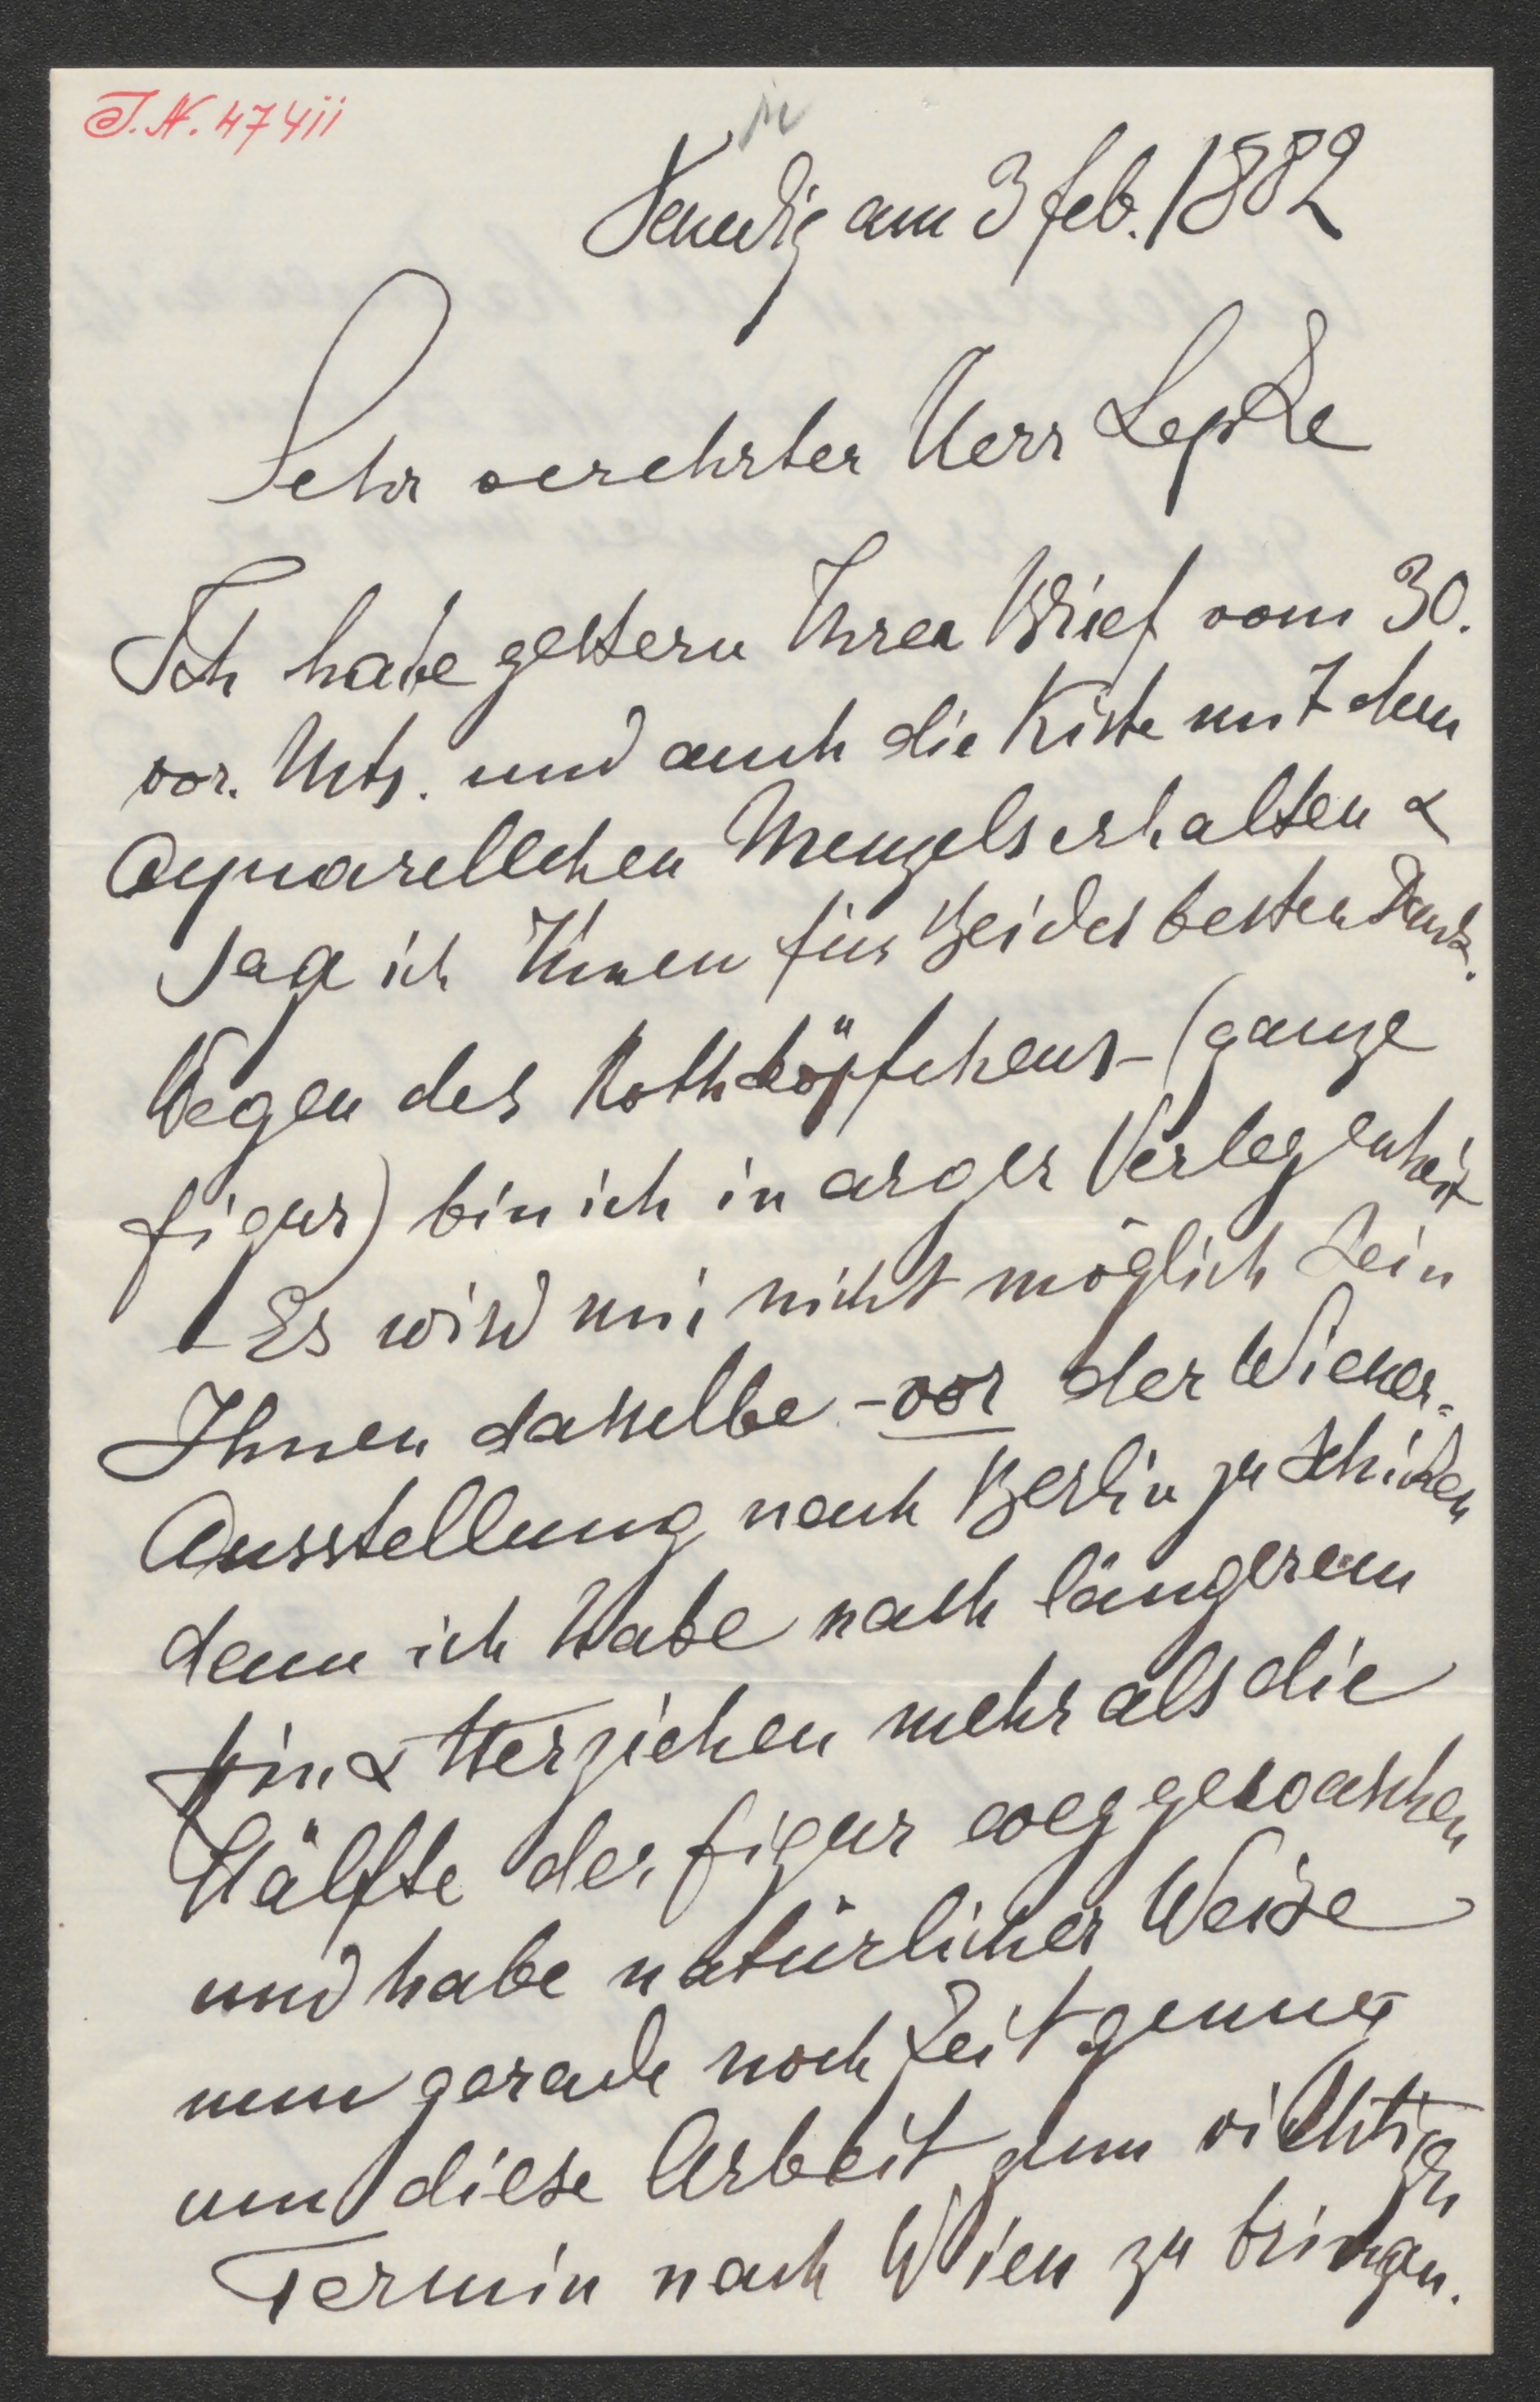 I.N. 47411
Venedig am 3 feb. 1882
Sehr verehrter Herr Lepke
Ich habe gestern Ihren Brief vom 30.
vor. Mts. und auch die Kiste mit dem
Aquarellchen Menzels erhalten &
sag ich Ihnen für Beides besten Dank.
Wegen des Rothköpfchens – (ganze
figur) bin ich in arger Verlegenheit
– Es wird mir nicht möglich sein
Ihnen dasselbe – vor der Wiener-
Ausstellung nach Berlin zu schicken
denn ich habe nach längerem
hin & Herziehen mehr als die
Hälfte der figur weggewaschen
und habe natürlicher Weise
nun gerade noch Zeit genug
um diese Arbeit zum richtigen
Termin nach Wien zu bringen.